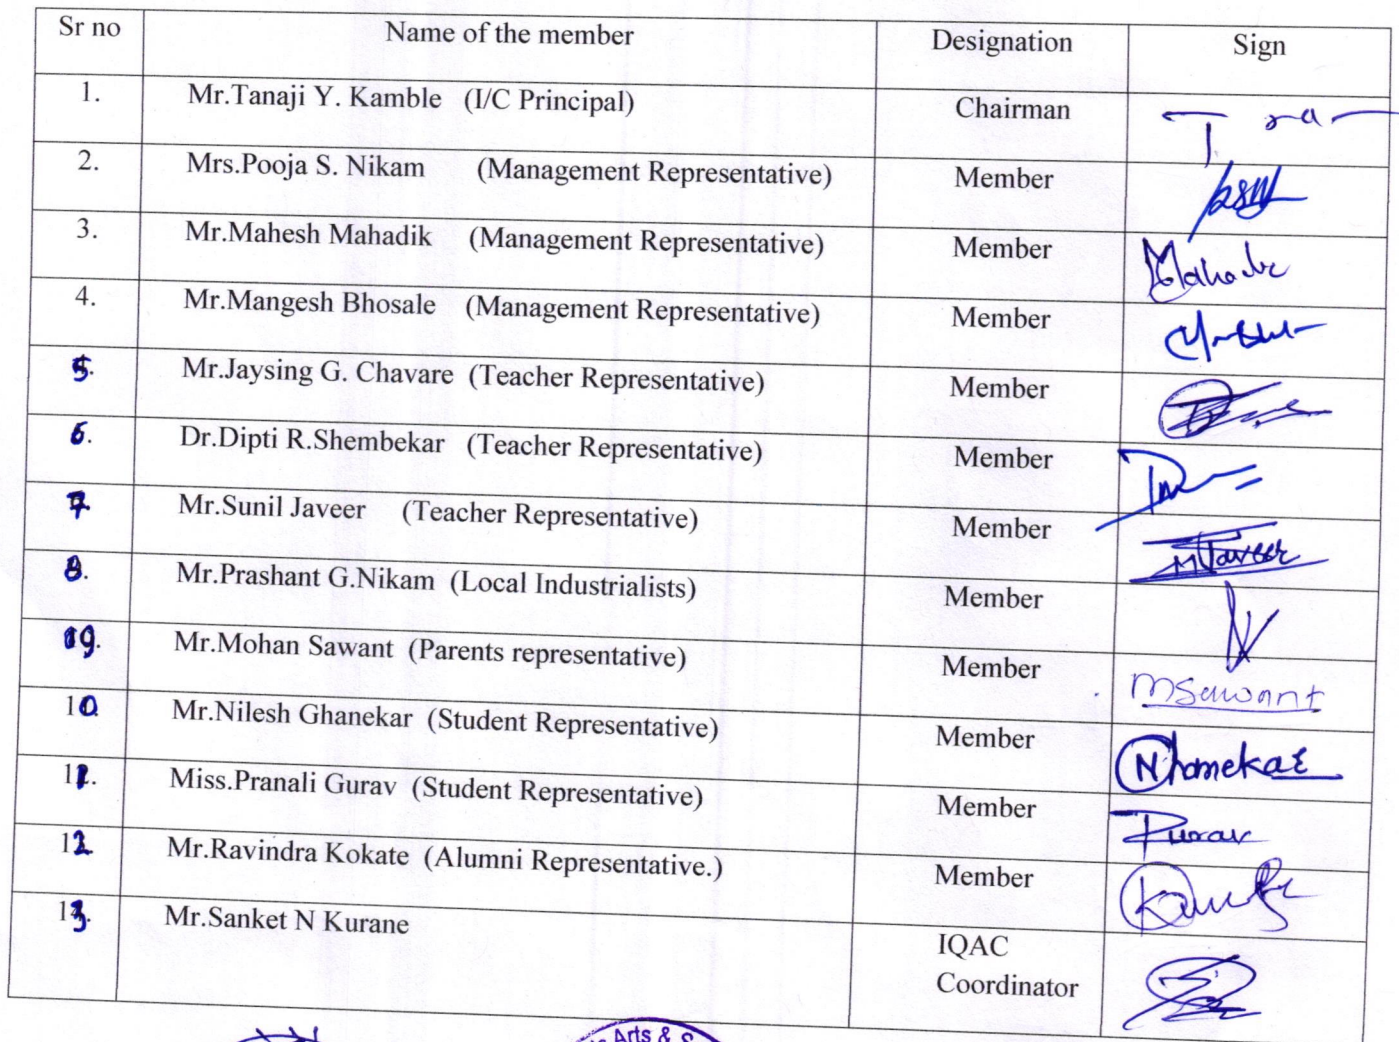 Sr no Name of the member Designation Sign
1. Mr.Tanaji Y. Kamble (I/C Principal) Chairman
2. Mrs.Pooja S. Nikam (Management Representative) Member
3. Mr.Mahesh Mahadik (Management Representative) Member
4. Mr.Mangesh Bhosale (Management Representative) Member
5. Mr.Jaysing G. Chavare (Teacher Representative) Member
6. Dr.Dipti R.Shembekar (Teacher Representative) Member
7 Mr.Sunil Javeer (Teacher Representative) Member MJaveer
8. Mr.Prashant G.Nikam (Local Industrialists) Member
9. Mr.Mohan Sawant (Parents representative) Member MSawant
10 Mr.Nilesh Ghanekar (Student Representative) Member
11. Miss.Pranali Gurav (Student Representative) Member
12 Mr.Ravindra Kokate (Alumni Representative.) Member
13. Mr.Sanket N Kurane IQAC
Coordinator
Arts &